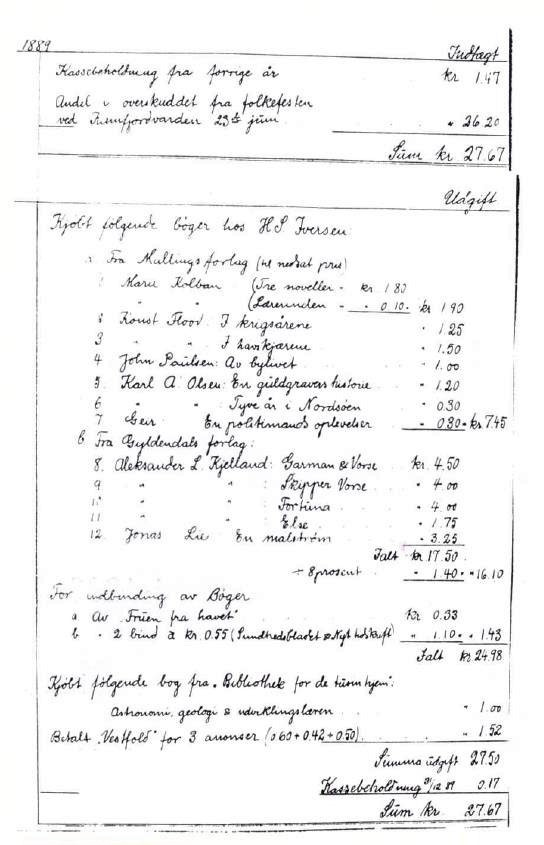 1889
Indtægt
Kassebeholdning fra forrige år kr 1.47
Andel i overskuddet fra folkefesten
ved jūni " 26.20
Sūm kr. 27.67
Udgift
Kjøbt følgende bøger hos H.P. Iversen:
a Fra Mallings forlag (til nedsat pris)
1 Marie Kolban (Tre noveller - kr 1.80
" " (Lærerinden - " 0.10 - kr 1.90
2 Konst. Floor. I krigsårene " 1.25
3 " " I havskjærene " 1.50
4 John Paulsen: Av bylivet " 1.00
5. Karl A. Olsen: En gūldgravers historie " 1.20
6 " " Tyve år i Nordsøen " 0.30
7 Geir En politimands oplevelser " 0.30 - kr 7.45
b Fra Gyldendals forlag:
8. Aleksander L. Kjelland: Garman & Worse kr. 4.50
9 " " : Skipper Worse " 4.00
10 " " : Fortūna " 4.00
11 " " : Else " 1.75
12. Jonas Lie En malstrøm " 3.25
Ialt kr 17.50
÷ 8 prosent " 1.40 - " 16.10
For indbinding av Bøger
a Av "Frūen fra havet" kr 0.33
b " 2 bind à kr. 0.55 (Sūndhedsbladet & Nyt tidskrift) " 1.10 - " 1.43
Ialt kr 24.98
Kjøbt følgende bog fra "Bibliothek for de tūsin hjem":
Astronomi, geologi & udviklingslæren " 1.00
Betalt "Vestfold" for 3 anonser (0.60 + 0.42 + 0.50) " 1.52
Sūmma ūdgift 27.50
Kassebeholdning 31/12 89 0.17
Sūm kr. 27.67